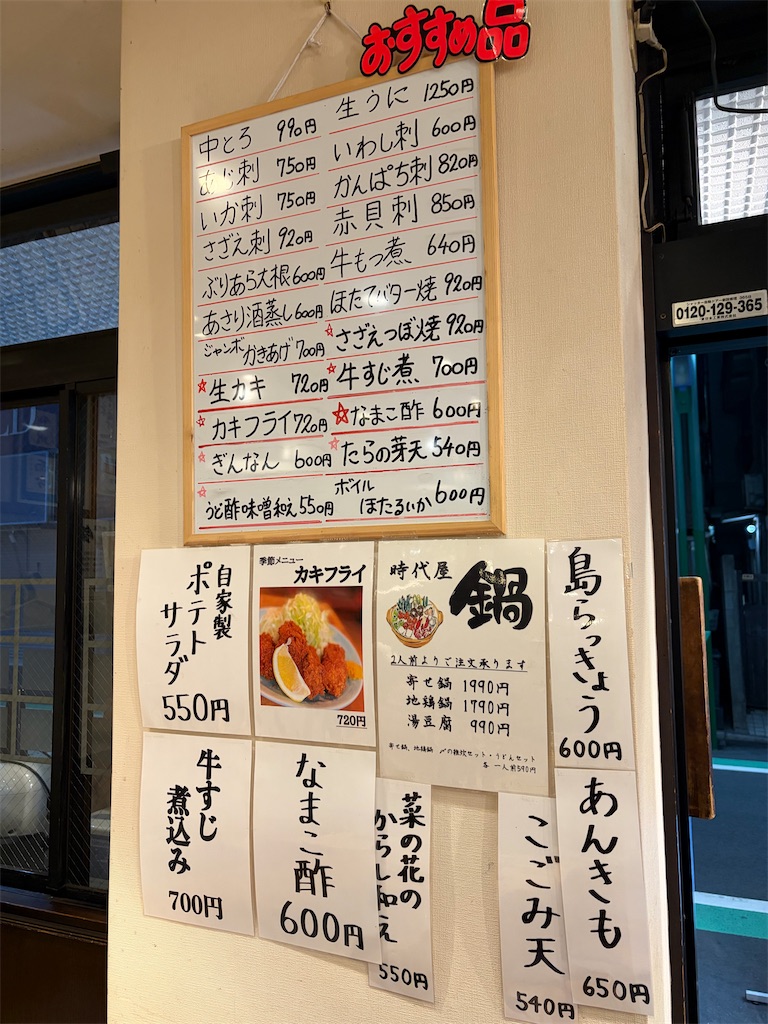 おすすめ品
中とろ 990円
あじ刺 750円
いか刺 750円
さざえ刺 920円
ぶりあら大根 600円
あさり酒蒸し 600円
ジャンボかきあげ 700円
☆生カキ 720円
☆カキフライ 720円
☆ぎんなん 600円
☆うど酢味噌和え 550円
生うに 1250円
いわし刺 600円
かんぱち刺 820円
赤貝刺 850円
牛もつ煮 640円
ほたてバター焼 920円
☆さざえつぼ焼 920円
☆牛すじ煮 700円
☆なまこ酢 600円
☆たらの芽天 540円
ボイル
ほたるいか 600円
0120-129-365
自家製
ポテト
サラダ
550円
季節メニュー
カキフライ
720円
時代屋
鍋
2人前よりご注文承ります
寄せ鍋 1990円
地鶏鍋 1790円
湯豆腐 990円
寄せ鍋、地鶏鍋 〆の雑炊セット・うどんセット
各 一人前590円
島らっきょう
600円
牛すじ
煮込み
700円
なまこ酢
600円
菜の花の
からし和え
550円
こごみ天
540円
あんきも
650円